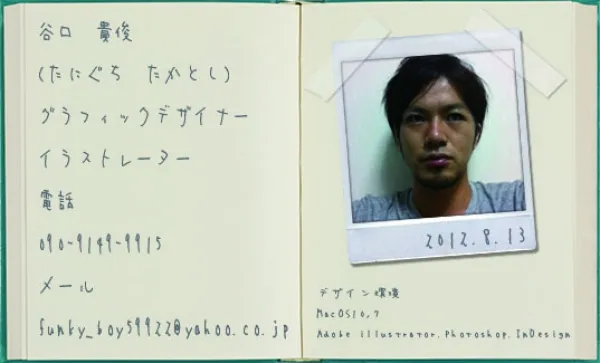 谷口　貴俊
(たにぐち　たかとし)
グラフィックデザイナー
イラストレーター
電話
090-9149-9915
メール
funky_boy59922@yahoo.co.jp
2012.8.13
デザイン環境
MacOS10,7
Adobe illustrator.Photoshop.InDesign